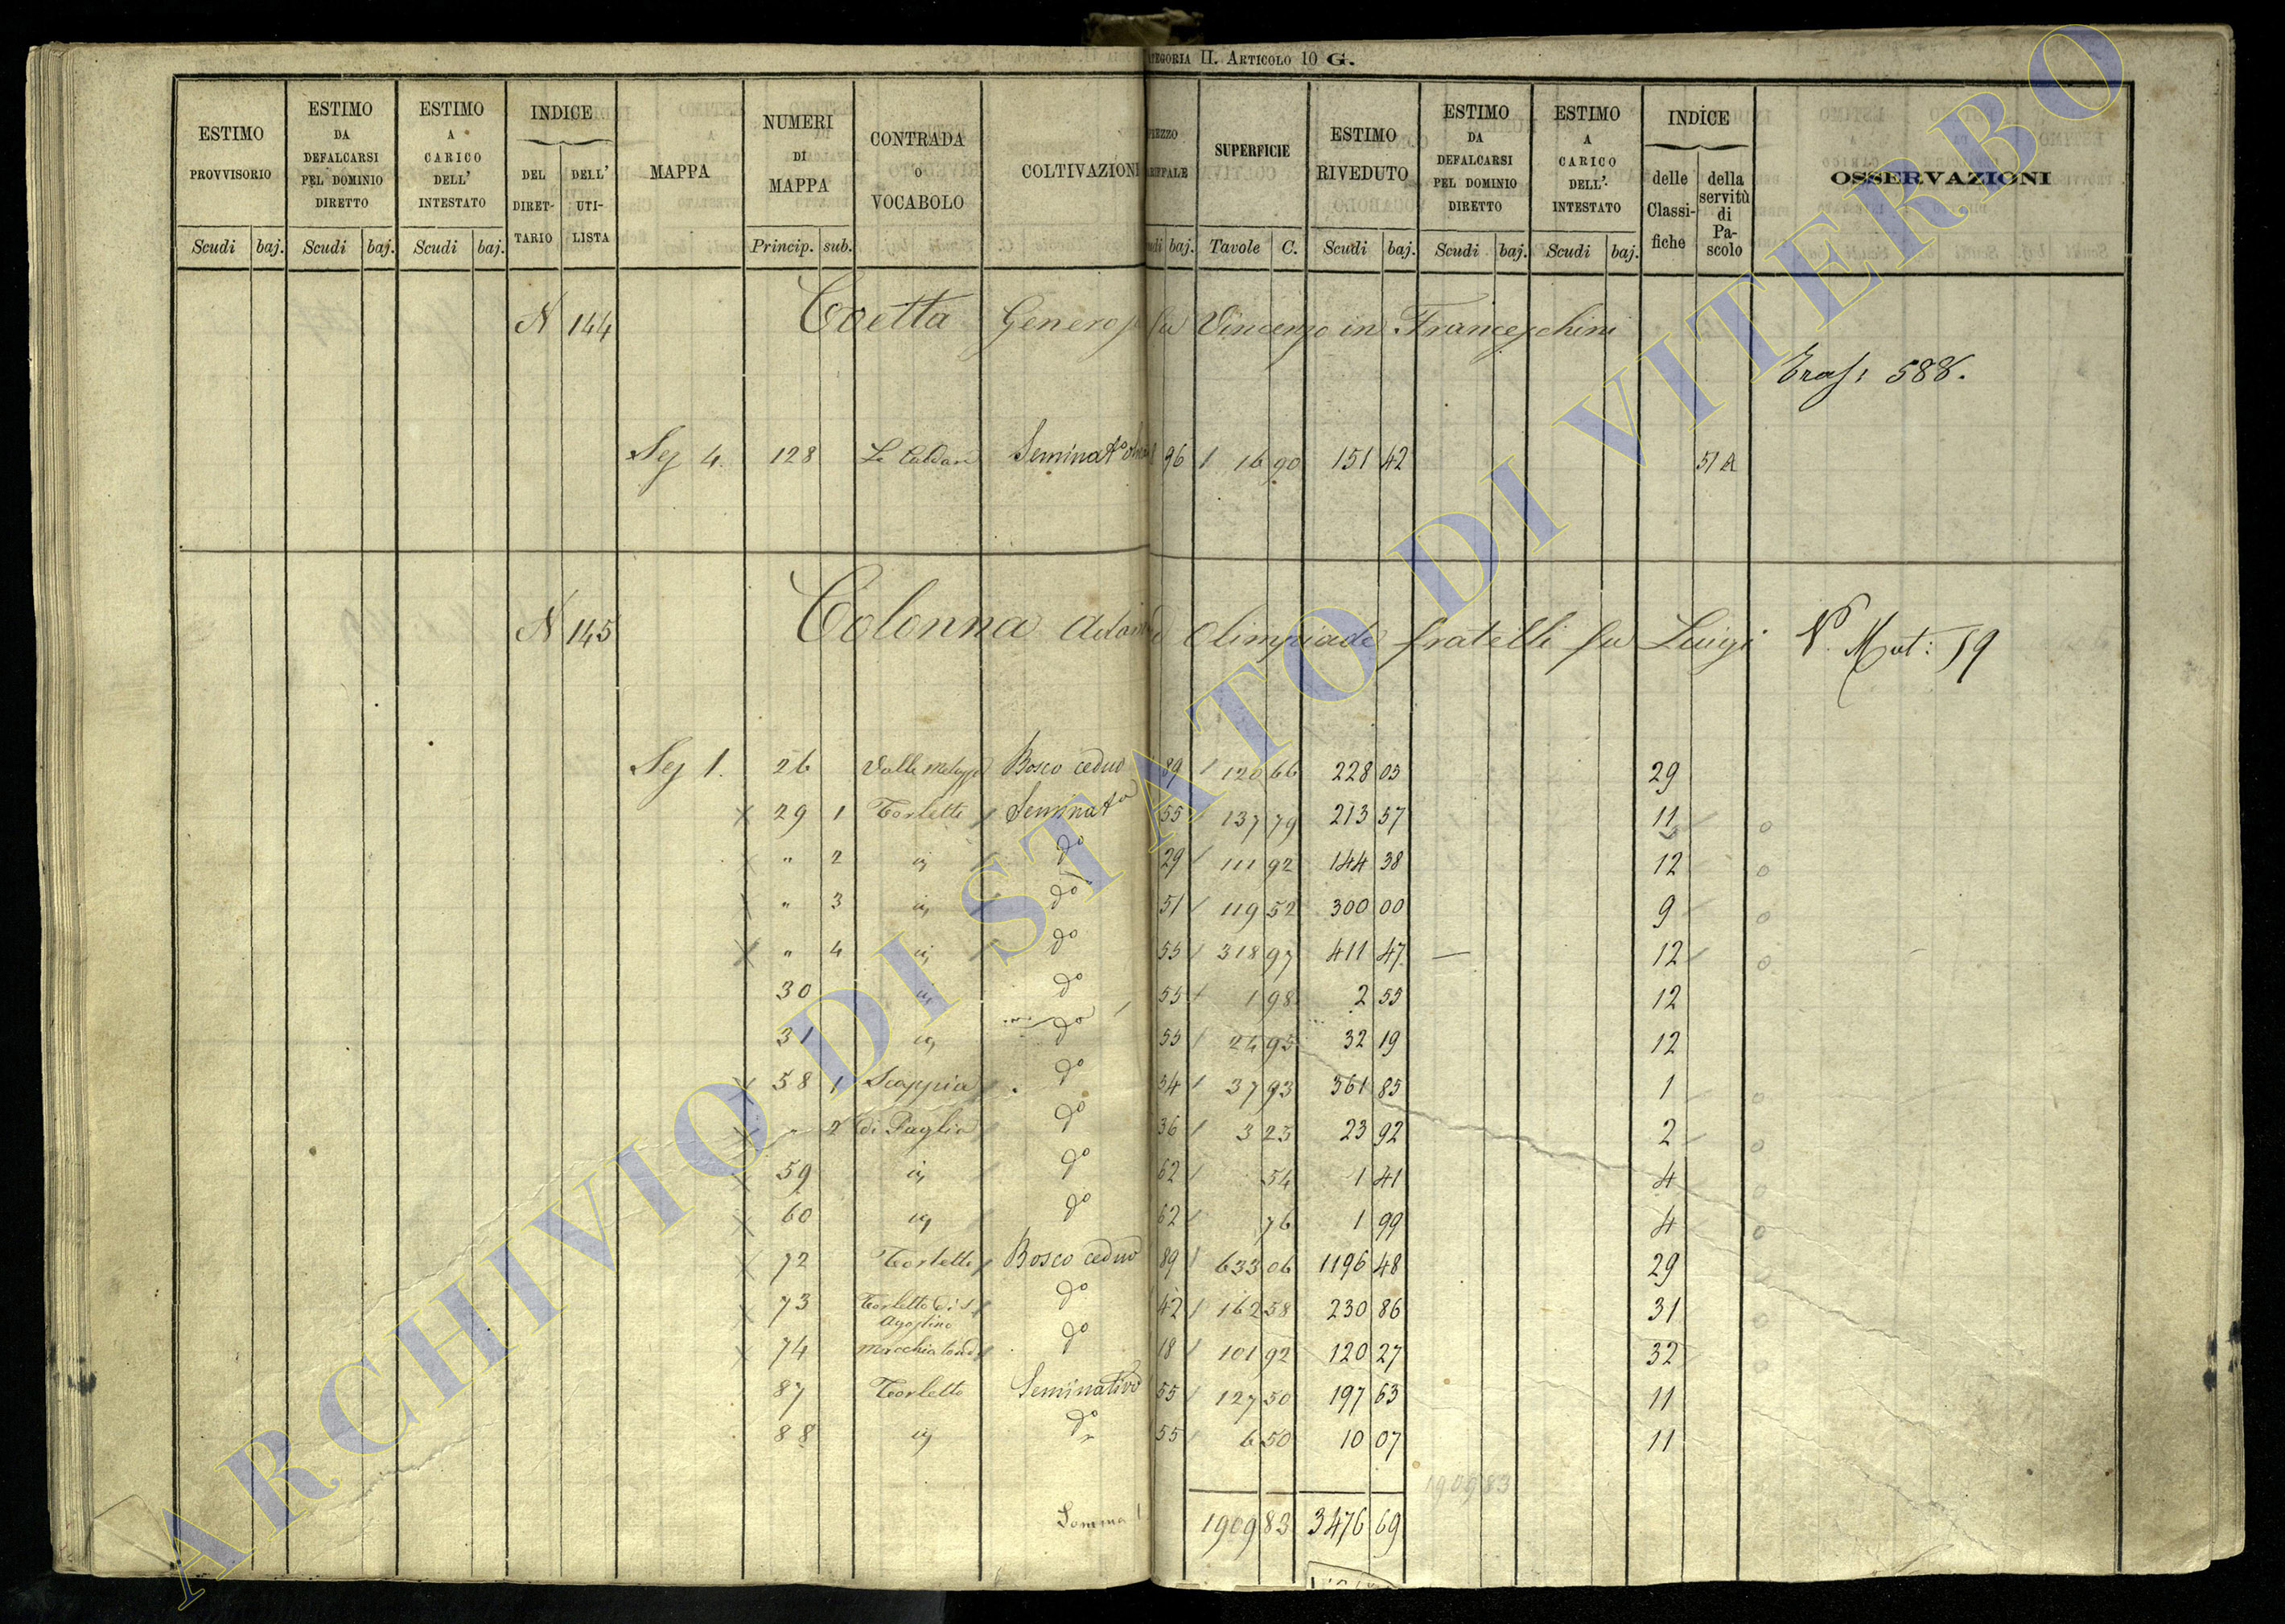 CATEGORIA II. ARTICOLO 10 G.
ESTIMO PROVVISORIO Scudi baj.
ESTIMO DA DEFALCARSI PEL DOMINIO DIRETTO Scudi baj.
ESTIMO A CARICO DELL' INTESTATO Scudi baj.
INDICE DEL DIRETTARIO DELL' UTILISTA
MAPPA
NUMERI DI MAPPA Princip. sub.
CONTRADA O VOCABOLO
COLTIVAZIONI
baj.
SUPERFICIE Tavole C.
ESTIMO RIVEDUTO Scudi baj.
ESTIMO DA DEFALCARSI PEL DOMINIO DIRETTO Scudi baj.
ESTIMO A CARICO DELL' INTESTATO Scudi baj.
INDICE delle Classifiche della servitù di Pascolo
OSSERVAZIONI
N 144 fu Vincenzo in Franceschini
588.
Sez 4. 128 Seminat° 96 16 90 151 42 51 A
N 145 Colonna Olimpiade fratelli fu Luigi N. Mat: 59
Sez 1. 26 Bosco ceduo 89 120 66 228 05 29
29 1 Torletto Seminat° 55 137 79 213 57 11
" 2 d° 29 111 92 144 38 12
" 3 d° 51 119 52 300 00 9
" 4 d° 55 318 97 411 47 12
30 d° 55 1 98 2 55 12
31 d° 55 24 95 32 19 12
58 1 Scoppia d° 54 37 93 361 85 1
" 2 di Paglia d° 36 3 25 23 92 2
59 d° 62 54 1 41 4
60 d° 62 76 1 99 4
72 Torletto Bosco ceduo 89 633 06 1196 48 29
73 Torletto di S Agostino d° 42 162 58 230 86 31
74 d° 18 101 92 120 27 32
87 Torletto Seminativo 55 127 50 197 63 11
88 d° 55 6 50 10 07 11
1909 83
Somma 1909 83 3476 69
ARCHIVIO DI STATO DI VITERBO